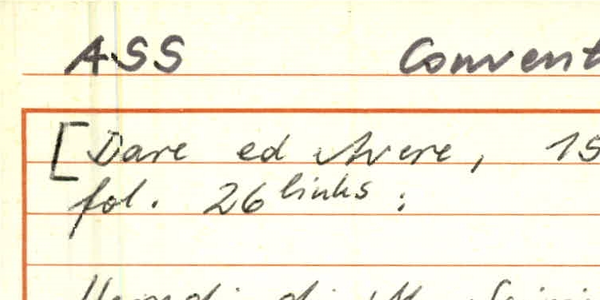 ASS Convent
[Dare ed Avere, 15
fol. 26 links:
di